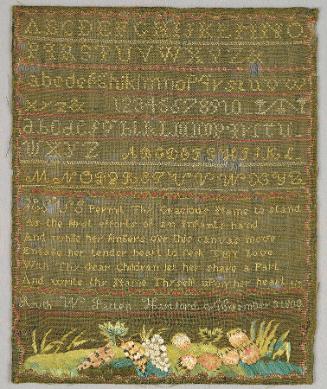 ABCDEFGHIJKLMNO
PQRSTUVWXYZ
abcdefghiklmnopqrstuvw
xyz& 12345678910
abcdefghiklmnopqrstu
WXYZ ABCDEFGHIKL
MNOPQRSTUVWXYZ
JESUS Permit Thy Gracious Name to stand
As the first efforts of an Infants hand
And while her fingers over this canvas move
Engage her tender heart to seek Thy Love
With Thy dear Children let her share a Part
And write thy Name Thyself upon her heart
Ruth W Patten Hartford November